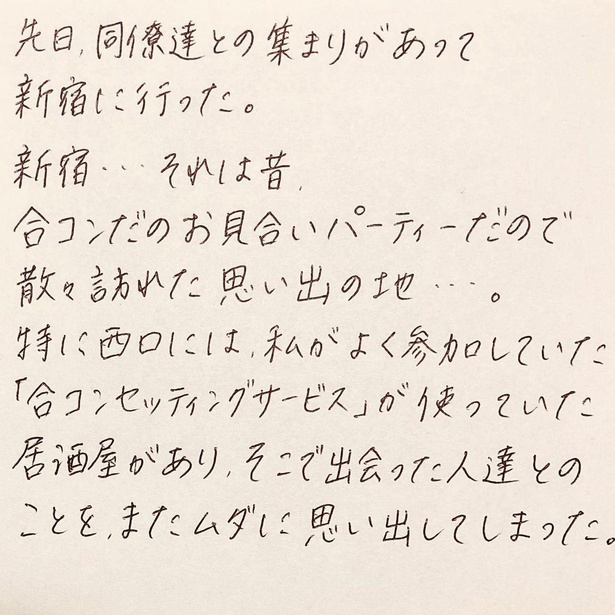 先日,同僚達との集まりがあって
新宿に行った。
新宿…それは昔,
合コンだのお見合いパーティーだので
散々訪れた思い出の地…。
特に西口には,私がよく参加していた
「合コンセッティングサービス」が使っていた
居酒屋があり,そこで出会った人達との
ことを,またムダに思い出してしまった。